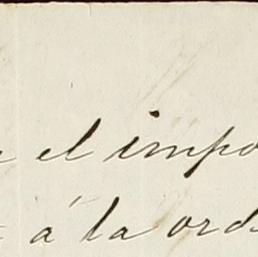 el impo
á la ord